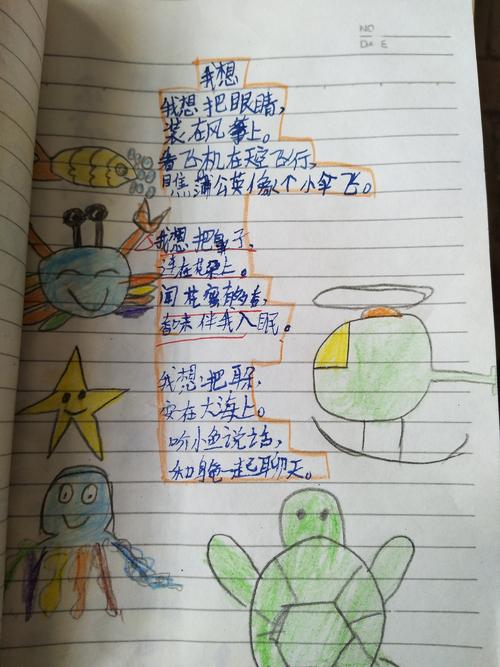 NO
我想
我想把眼睛,
装在风筝上。
看飞机在天空飞行,
瞧蒲公英像个小伞飞。
我想把鼻子,
连在花朵上。
闻花蜜有多香,
香味伴我入眠。
我想把耳朵,
安在大海上。
听小鱼说话,
和龟一起聊天。